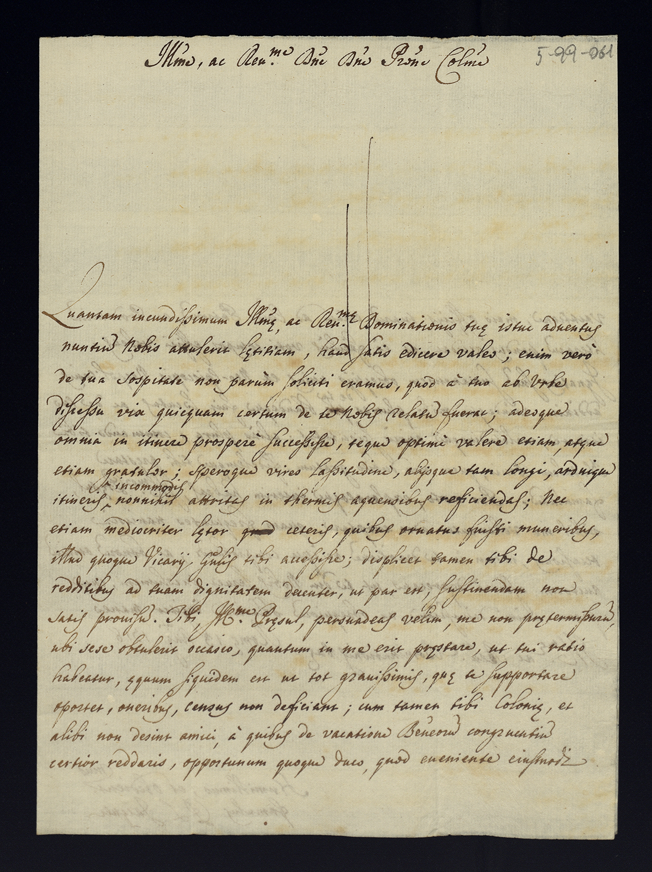 5-99-061
Illme, ac Reu.me Dne Dne Prone Colme
Quantam iucundissimum Illmę, ac Reu.mę Dominationis tuę istuc aduentus
nuntiu Nobis attulerit lętitiam, haud satis edicere valeo; enim verò
de tua sospitate non parùm soliciti eramus, quod à tuo ab Vrbe
discessu vix quicquam certum de te Nobis relatu fuerat; adeoque
omnia in itinere prosperè successisse, teque optimè valere etiam, atque
etiam gratulor; speroque vires lassitudine, absque tam longi, arduique
incommodis
itineris nonnihil attritas in thermis aquensibus reficiendas; Nec
etiam mediocriter lętor ceteris, quibus ornatus fuisti muneribus,
illud quoque Vicarij Gnlis tibi accessisse; displicet tamen tibi de
redditibus ad tuam dignitatem decenter, ut par est, sustinendam non
satis prouisu. Tibi, Illme Pręsul, persuadeas velim, me non prętermissuru,
ubi sese obtulerit occasio, quantum in me erit pręstare, ut tui ratio
habeatur, ęquum siquidem est ut tot grauissimis, quę te supportare
oportet, oneribus, census non deficiant; cum tamen tibi Colonię, et
alibi non desint amici, à quibus de vacatione Beneoru congruentiu
certior reddaris, opportunum quoque duco, quod eueniente eiusmodi